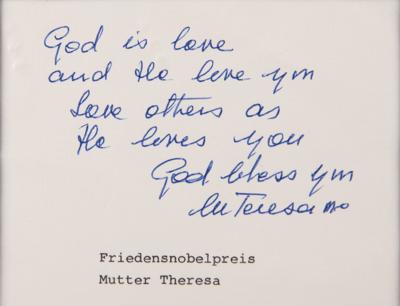 God is love
and He love you
Love others as
He loves you
God bless you
M Teresa mc
Friedensnobelpreis
Mutter Theresa